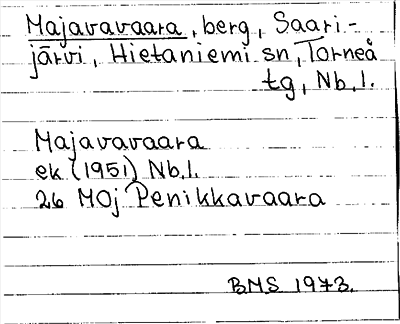 Majavavaara, berg, Saari-
järvi, Hietaniemi sn, Torneå
tg, Nb.l.
Majavavaara
ek (1951) Nb.l.
26 MOj Penikkavaara
BMS 1973.